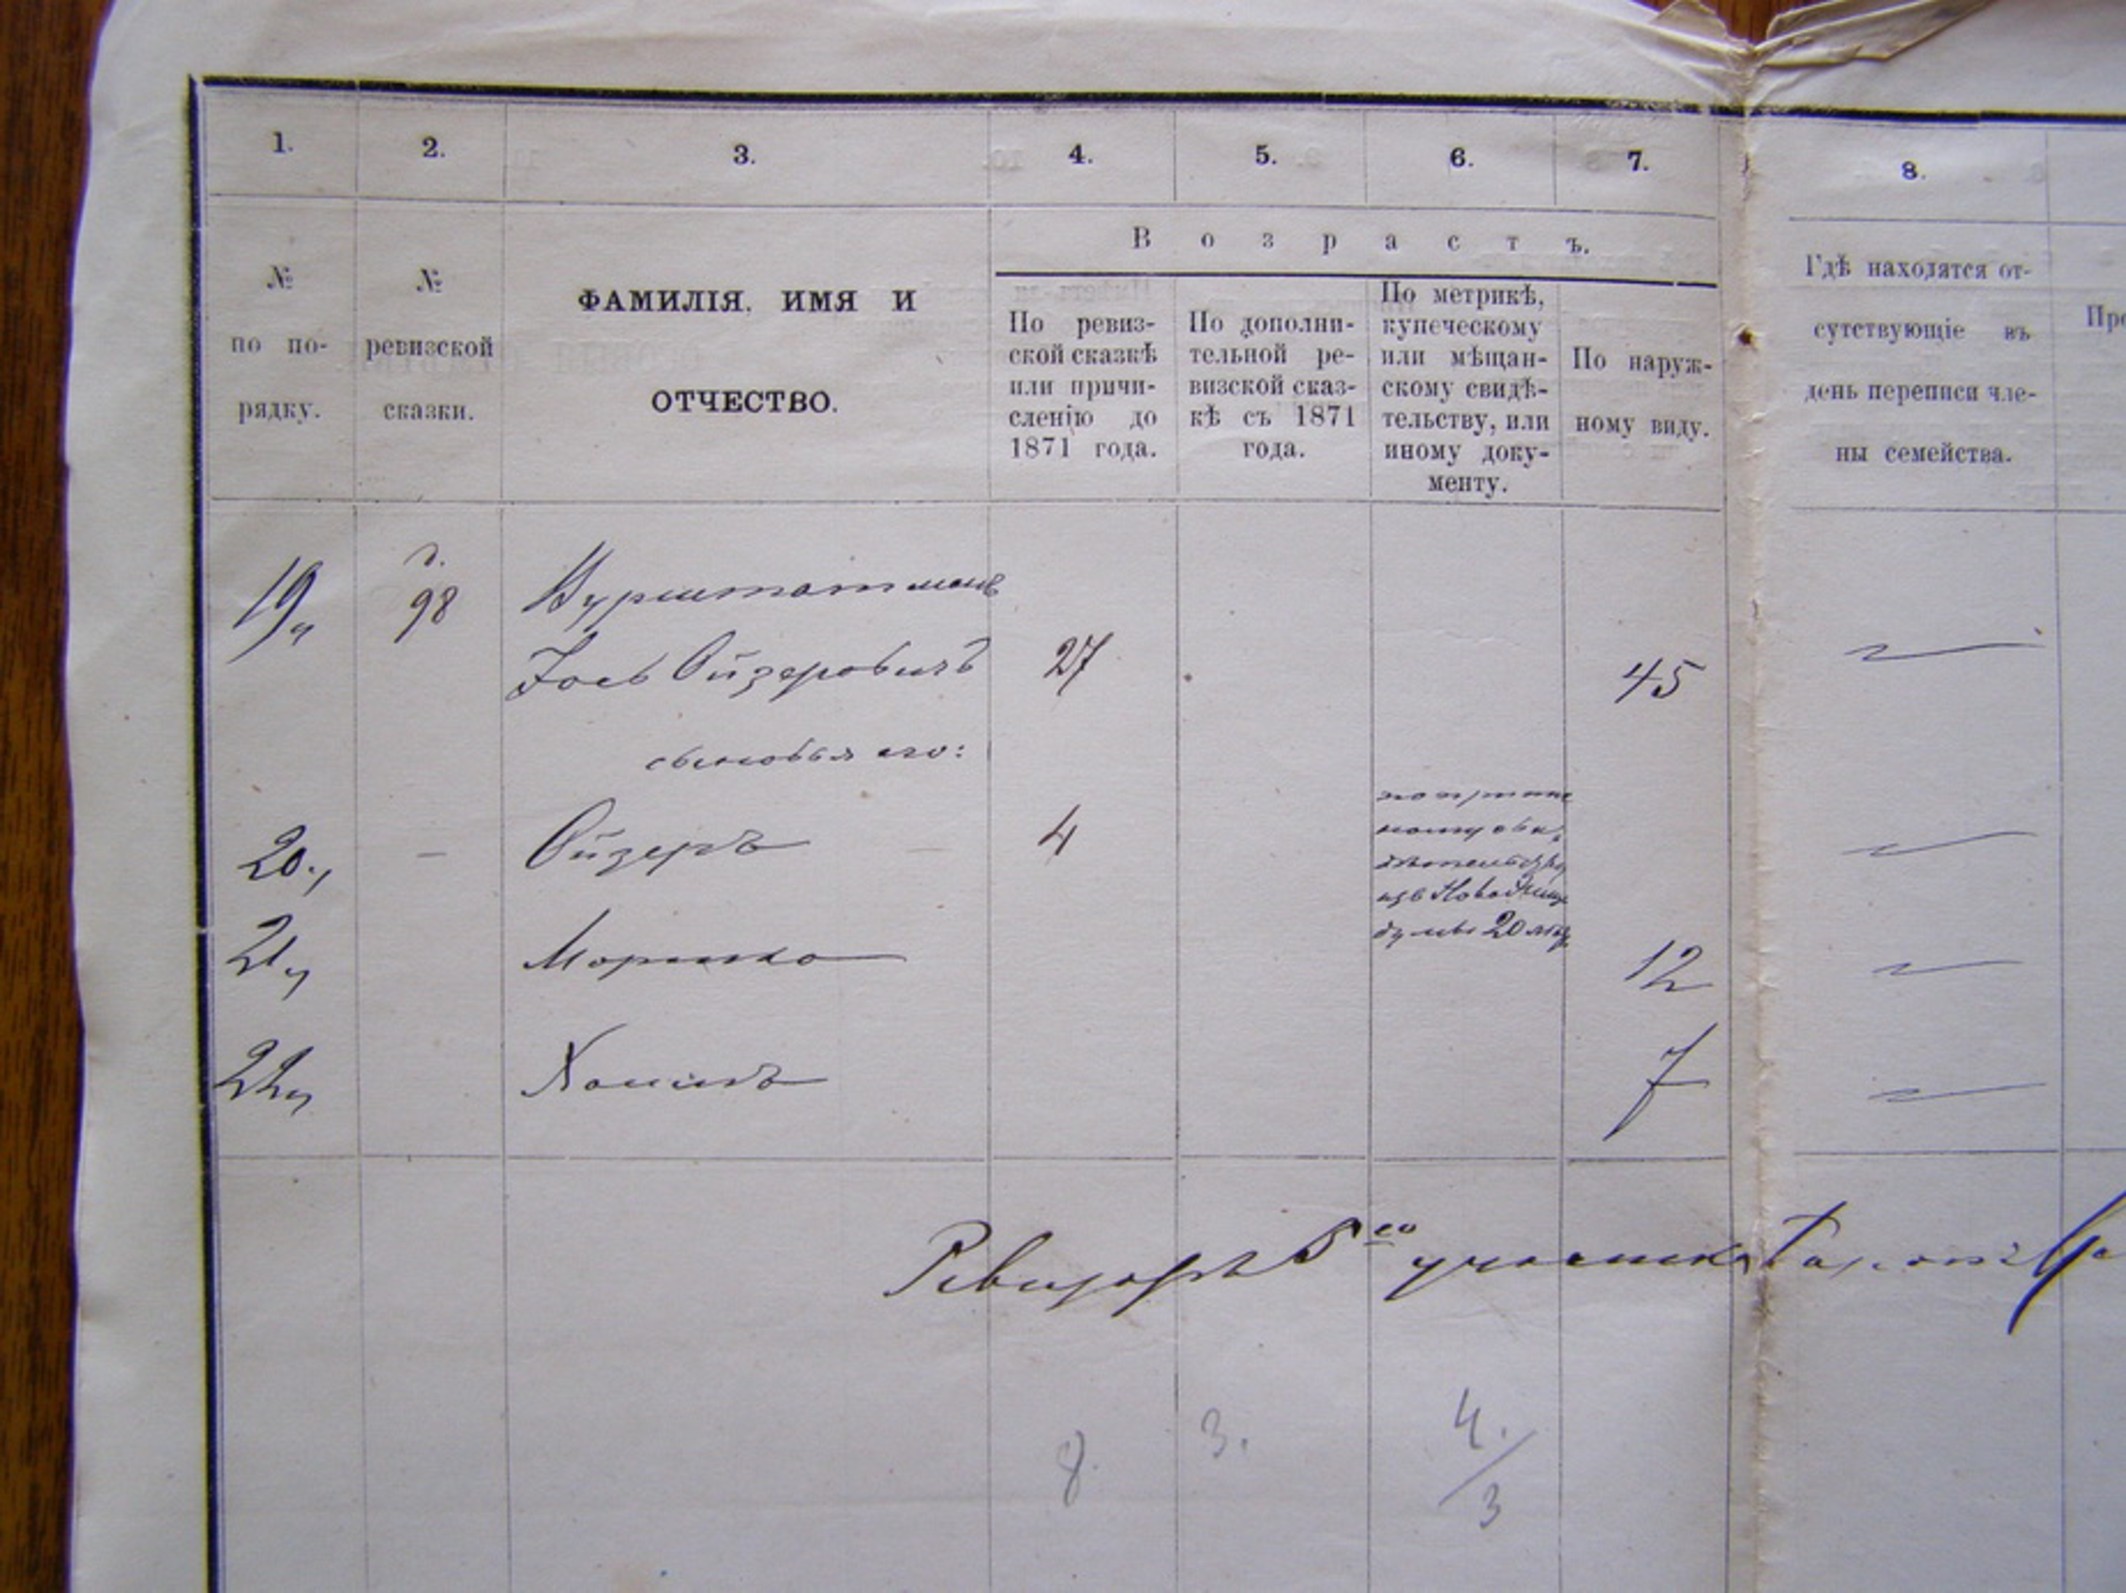 1.
2.
3.
4.
5.
6.
7.
8.
Возрастъ.
№
по по-
рядку.
№
ревизской
сказки.
ФАМИЛІЯ, ИМЯ И
ОТЧЕСТВО.
По ревиз-
ской сказкѣ
или причи-
сленію до
1871 года.
По дополни-
тельной ре-
визской сказ-
кѣ съ 1871
года.
По метрикѣ,
купеческому
или мѣщан-
скому свидѣ-
тельству, или
иному доку-
менту.
По наруж-
ному виду.
Гдѣ находятся от-
сутствующіе въ
день переписи чле-
ны семейства.
19
98
Вурштатманъ
Іось Ойзеровичъ
27
45
сыновья его:
20.
—
Ойзеръ
4
изъ
думы 20 лѣтъ
21
Моршко
12
22
Хаимъ
7
Ревизоръ 5го участка
8.
3.
4.
3